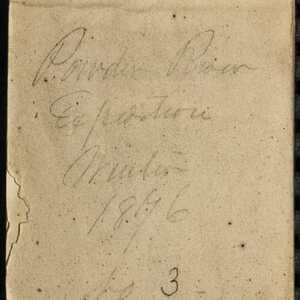 Powder River
Expedition
Winter
1876
3